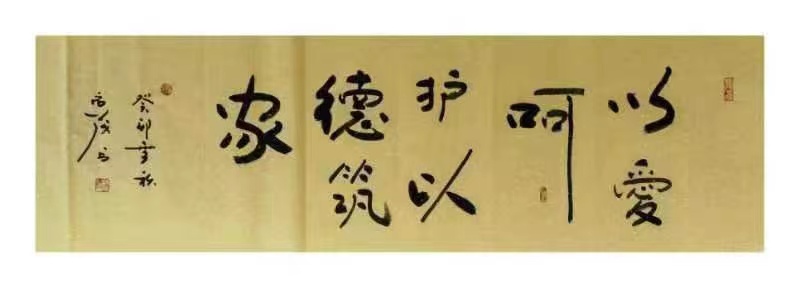 以愛
呵
护以
德筑
家
癸卯季秋